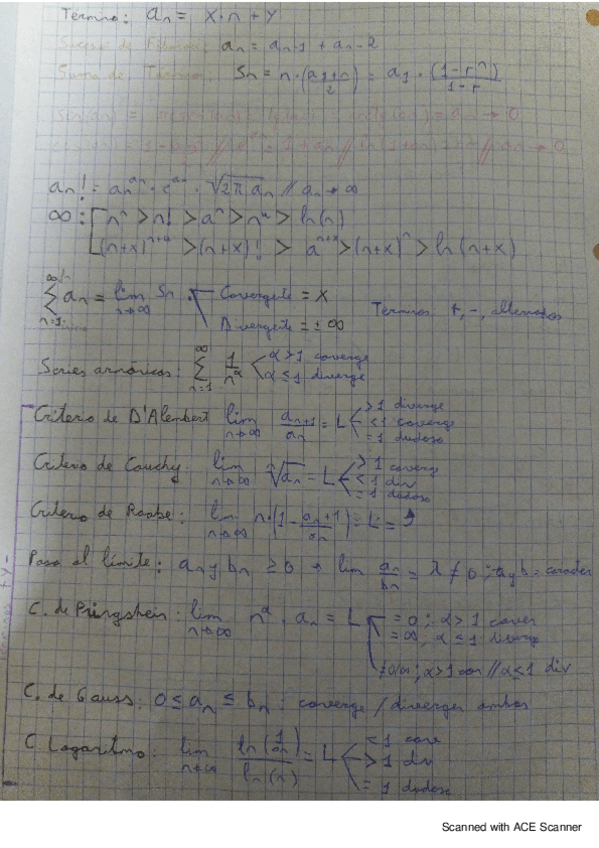 Término: an = x·n + y
Sucesió de Fibonacci an = an-1 + an-2
Suma de Términos: Sn = n·(a1+an/2) = a1·(1-r^n)/(1-r)
= an → 0
= 1 - // = 1 + an // ln(1+an) = an // an → 0
an! = an^an · e^-an · √2π an // an → ∞
∞: n^n > n! > a^n > n^a > ln(n)
(n+x)^n+a > (n+x)! > a^n+x > (n+x)^n > ln(n+x)
∞ Σ n=1 an = lim n→∞ Sn Covergete = x
Divergete = ± ∞
Términos +, -, alternados
Series armónicas: ∞ Σ n=1 1/n^α α > 1 coverge
α ≤ 1 diverge
Criterio de D'Alembert lim n→∞ an+1/an = L > 1 diverge
< 1 coverge
= 1 dudoso
Criterio de Cauchy: lim n→∞ n√an = L > 1 coverg
< 1 div
= 1 dudoso
Criterio de Raabe: lim n→∞ n·(1 - an+1/an) = L =
Paso al límite: an y bn ≥ 0 → lim an/bn = λ ≠ 0; a y b = caracter
C. de Pringshein: lim n→∞ n^α · an = L = 0; α > 1 cover
= ∞, α ≤ 1 diverge
≠ 0/∞; α > 1 con // α ≤ 1 div
C. de Gauss: 0 ≤ an ≤ bn: converge / diverger ambos
C Logaritmo: lim n→∞ ln(1/an)/ln(n) = L < 1 cove
> 1 div
= 1 dudoso
Scanned with ACE Scanner